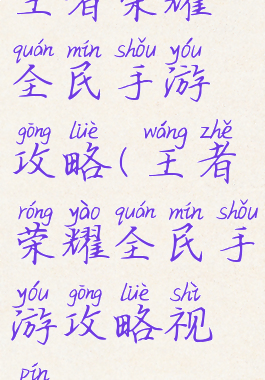 王者荣耀
quán mín shǒu yóu
全民手游
gōng lüè wáng zhě
攻略(王者
róng yào quán mín shǒu
荣耀全民手
yóu gōng lüè shì
游攻略视
pín